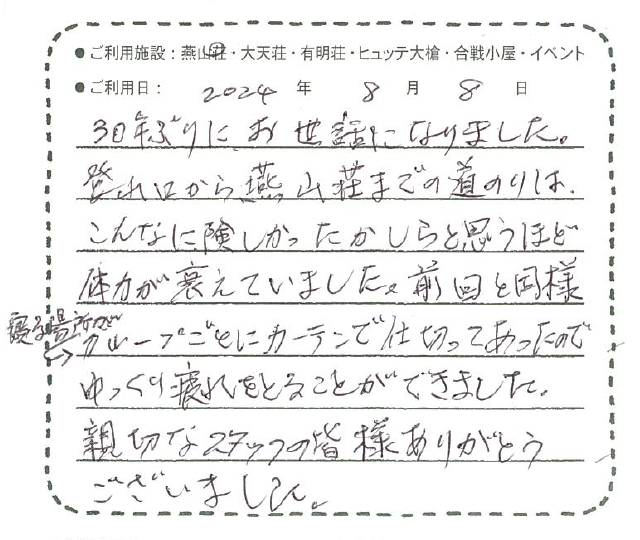 ●ご利用施設：燕山荘・大天荘・有明荘・ヒュッテ大槍・合戦小屋・イベント
●ご利用日： 2024 年 8 月 8 日
30年ぶりにお世話になりました。
登山口から燕山荘までの道のりは、
こんなに険しかったかしらと思うほど
体力が衰えていました。前回と同様
寝る場所が
グループごとにカーテンで仕切ってあったので
ゆっくり寝れをとることができました。
親切なスタッフの皆様ありがとう
ございました。